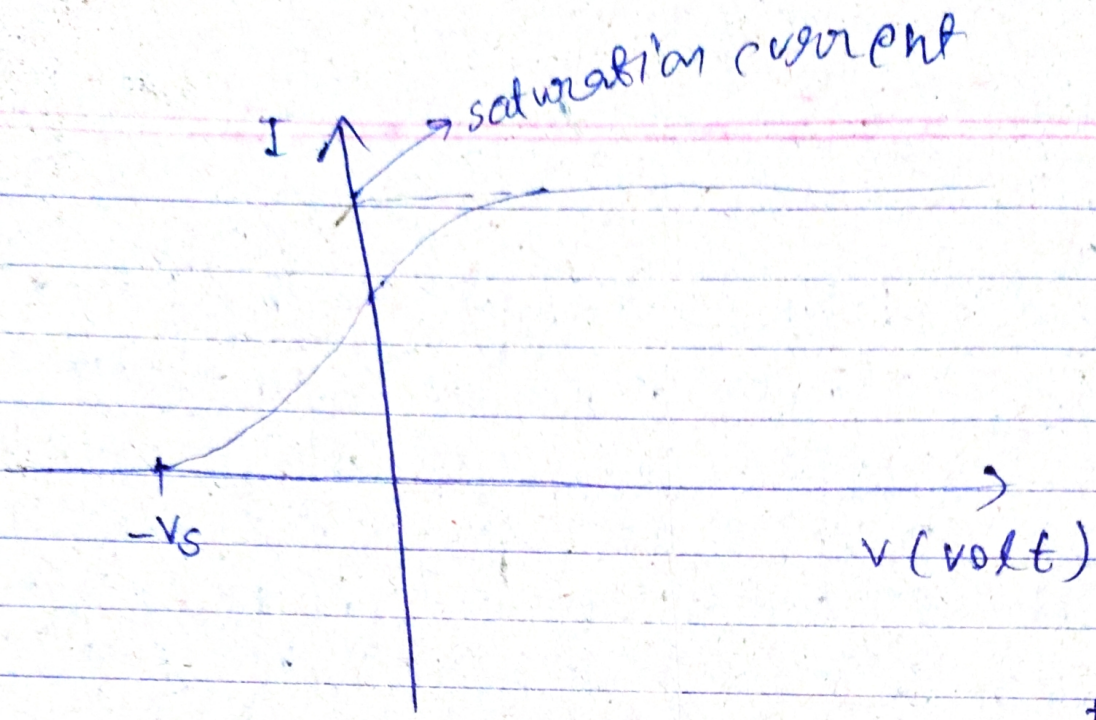 saturation current
I
-Vs
V (volt)